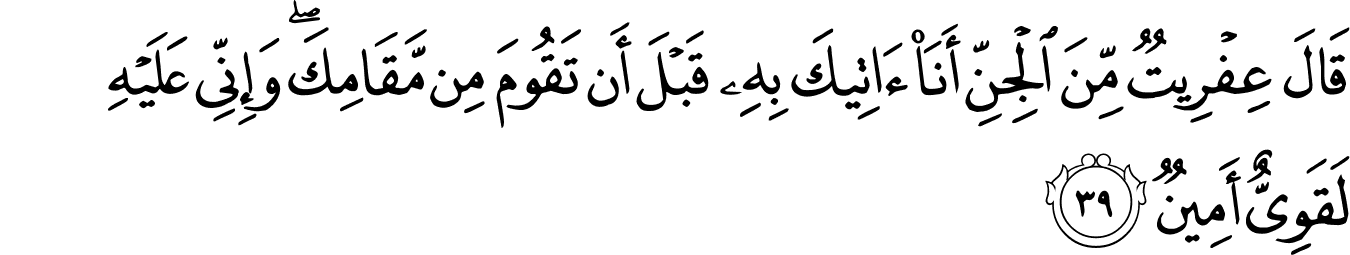 قَالَ عِفْرِيتٌ مِّنَ ٱلْجِنِّ أَنَا۠ ءَاتِيكَ بِهِۦ قَبْلَ أَن تَقُومَ مِن مَّقَامِكَ ۖ وَإِنِّى عَلَيْهِ
لَقَوِىٌّ أَمِينٌ ٣٩